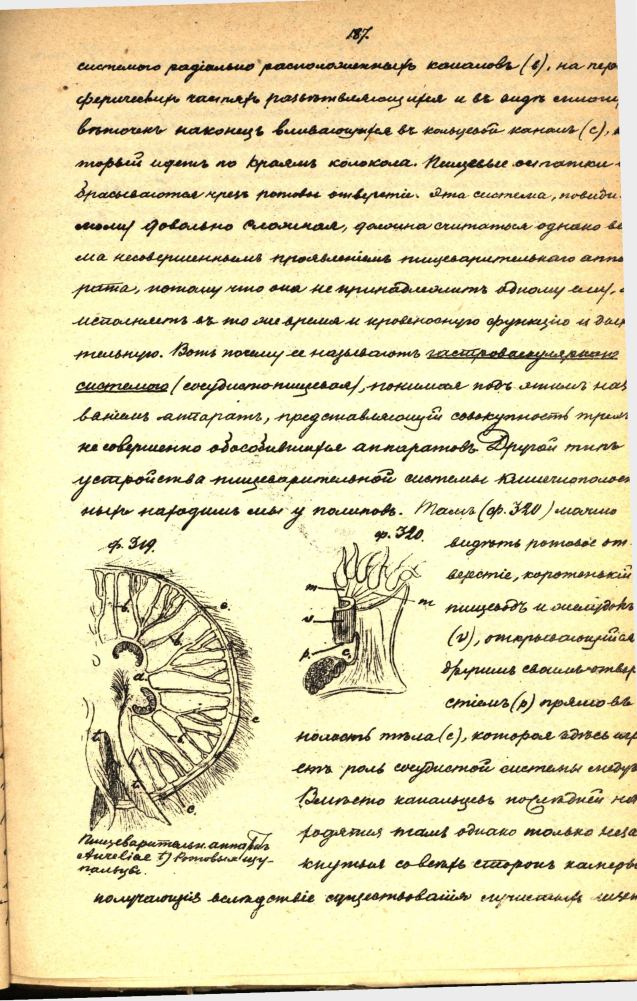 187.
системою радіально расположенныхъ каналовъ (в), на пери
сферическихъ частяхъ развѣтвляющихся и въ видѣ
вѣточекъ наконецъ вливающихся въ кольцевой каналъ (с), к
торый идетъ по краямъ колокола. Пищевые остатки
брасываются чрезъ ротовое отверстіе. Эта система, повиди
мому довольно сложная, должна считаться однако ве
ма несовершеннымъ проявленіемъ пищеварительнаго аппа
рата, потому что она не принадлежитъ одному ему, а
исполняетъ въ то же время и кровеносную функцію и дыха
тельную. Вотъ почему ее называютъ гастроваскулярною
системою (сосудистопищевая), понимая подъ этимъ наз
ваніемъ аппаратъ, представляющій совокупность трехъ
не совершенно обособившихся аппаратовъ. Другой типъ
устройства пищеварительной системы кишечнополост
ныхъ находимъ мы у полиповъ. Тамъ (ф. 320) можно
ф. 319.
ф. 320.
видѣть ротовое от
верстіе, коротенькій
пищеводъ и желудокъ
(v), открывающійся
другимъ своимъ отвер
стіемъ (р) прямо въ
полость тѣла (с), которая здѣсь игр
етъ роль сосудистой системы медуз
Вмѣсто канальцевъ послѣдней на
ходятся тамъ однако только неза
кнутыя со всѣхъ сторонъ камеры
получающія вслѣдствіе существованія
Пищеварительн. аппаратъ
Aureliae t) Ротовыя щу-
пальцы.